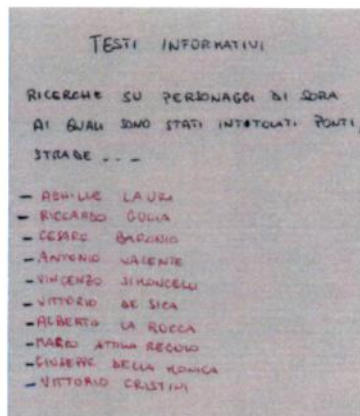 TESTI INFORMATIVI
RICERCHE SU PERSONAGGI DI SORA
AI QUALI SONO STATI INTITOLATI PONTI,
STRADE ...
- ACHILLE LAURI
- RICCARDO GULIA
- CESARE BARONIO
- ANTONIO VALENTE
- VINCENZO SIMONCELLI
- VITTORIO DE SICA
- ALBERTO LA ROCCA
- MARCO ATTILIO REGOLO
- GIUSEPPE DELLA MONICA
- VITTORIO CRISTINI